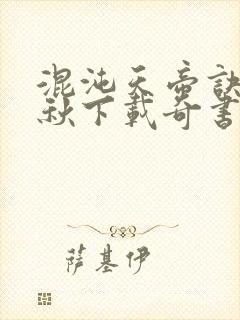 混沌天帝訣
秋下載奇書
萨基伊